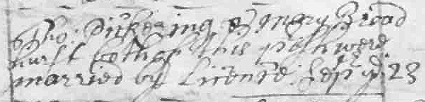 Tho: Pickering & Mary Broad
hurst both of this pish were
married by Licence Sept ye. 23